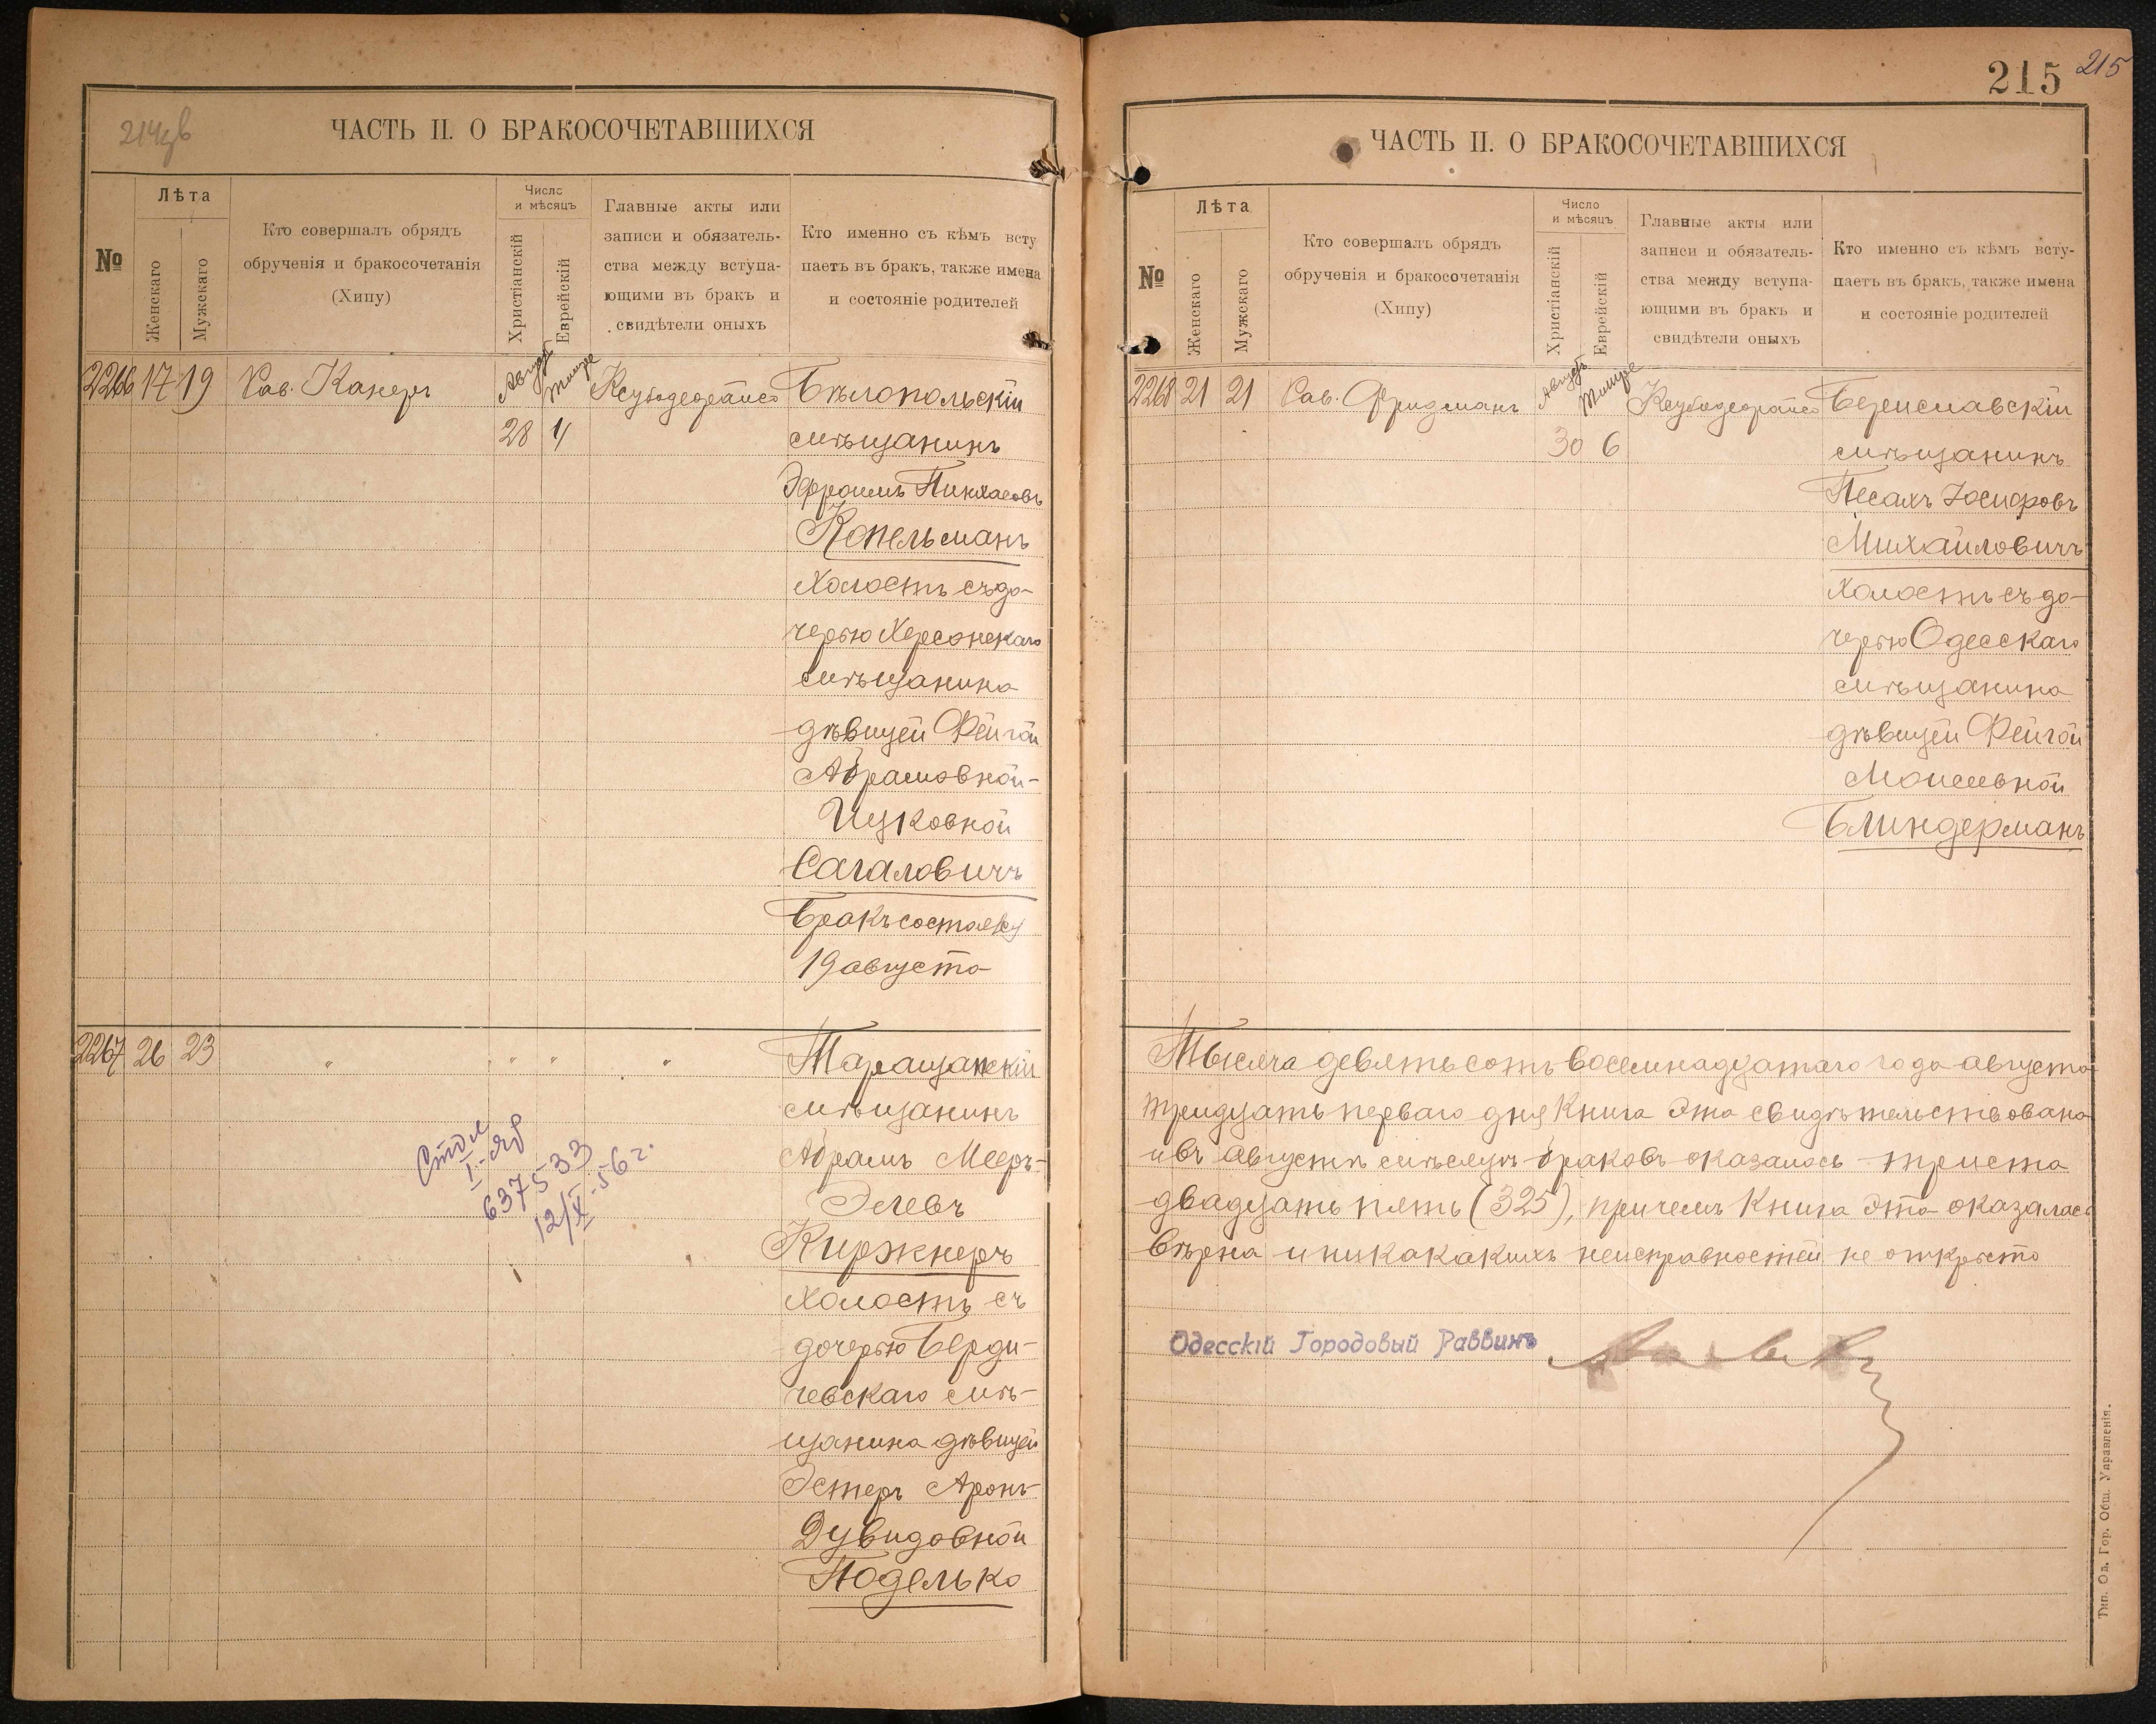 214об
ЧАСТЬ II. О БРАКОСОЧЕТАВШИХСЯ
№
Лѣта
Женскаго
Мужскаго
Кто совершалъ обрядъ
обрученія и бракосочетанія
(Хипу)
Число
и мѣсяцъ
Христіанскій
Еврейскій
Главные акты или
записи и обязатель-
ства между вступа-
ющими въ бракъ и
свидѣтели оныхъ
Кто именно съ кѣмъ всту
паетъ въ бракъ, также имена
и состояніе родителей
2266 17 19 Рав. Канеръ Августъ Тишре Ксубодеорайсо Бѣлопольскій
28 4 мѣщанинъ
Эфроимъ Пинхасовъ
Копельманъ
холостъ съ до-
черью Херсонскаго
мѣщанина
дѣвицей Фейгой
Абрамовной-
Ицковной
Сагаловичъ
Бракъ состоялся
19 августа
2267 26 23 " " " " Таращанскій
мѣщанинъ
Абрамъ Мееръ-
Элевъ
Киржнеръ
холостъ съ
дочерью Берди-
чевскаго мѣ-
щанина дѣвицей
Эстеръ Аронъ-
Дувидовной
Поделько
637533
12/X-56 г.
215
215
ЧАСТЬ II. О БРАКОСОЧЕТАВШИХСЯ
№
Лѣта
Женскаго
Мужскаго
Кто совершалъ обрядъ
обрученія и бракосочетанія
(Хипу)
Число
и мѣсяцъ
Христіанскій
Еврейскій
Главные акты или
записи и обязатель-
ства между вступа-
ющими въ бракъ и
свидѣтели оныхъ
Кто именно съ кѣмъ всту-
паетъ въ бракъ, также имена
и состояніе родителей
2268 21 21 Рав. Фридманъ Августъ Тишре Ксубодеорайсо Бериславскій
30 6 мѣщанинъ
Песахъ Іосифовъ
Михайловичъ
холостъ съ до-
черью Одесскаго
мѣщанина
дѣвицей Фейгой
Моисеевной
Блиндерманъ
Тысяча девятьсотъ восемнадцатаго года августа
тридцать перваго дня книга эта свидѣтельствована
и въ августѣ мѣсяцѣ браковъ оказалось триста
двадцать пять (325), причемъ книга эта оказалась
вѣрна и никакакихъ неисправностей не открыто
Одесскій Городовый Раввинъ
Тип. Од. Гор. Общ. Управленія.